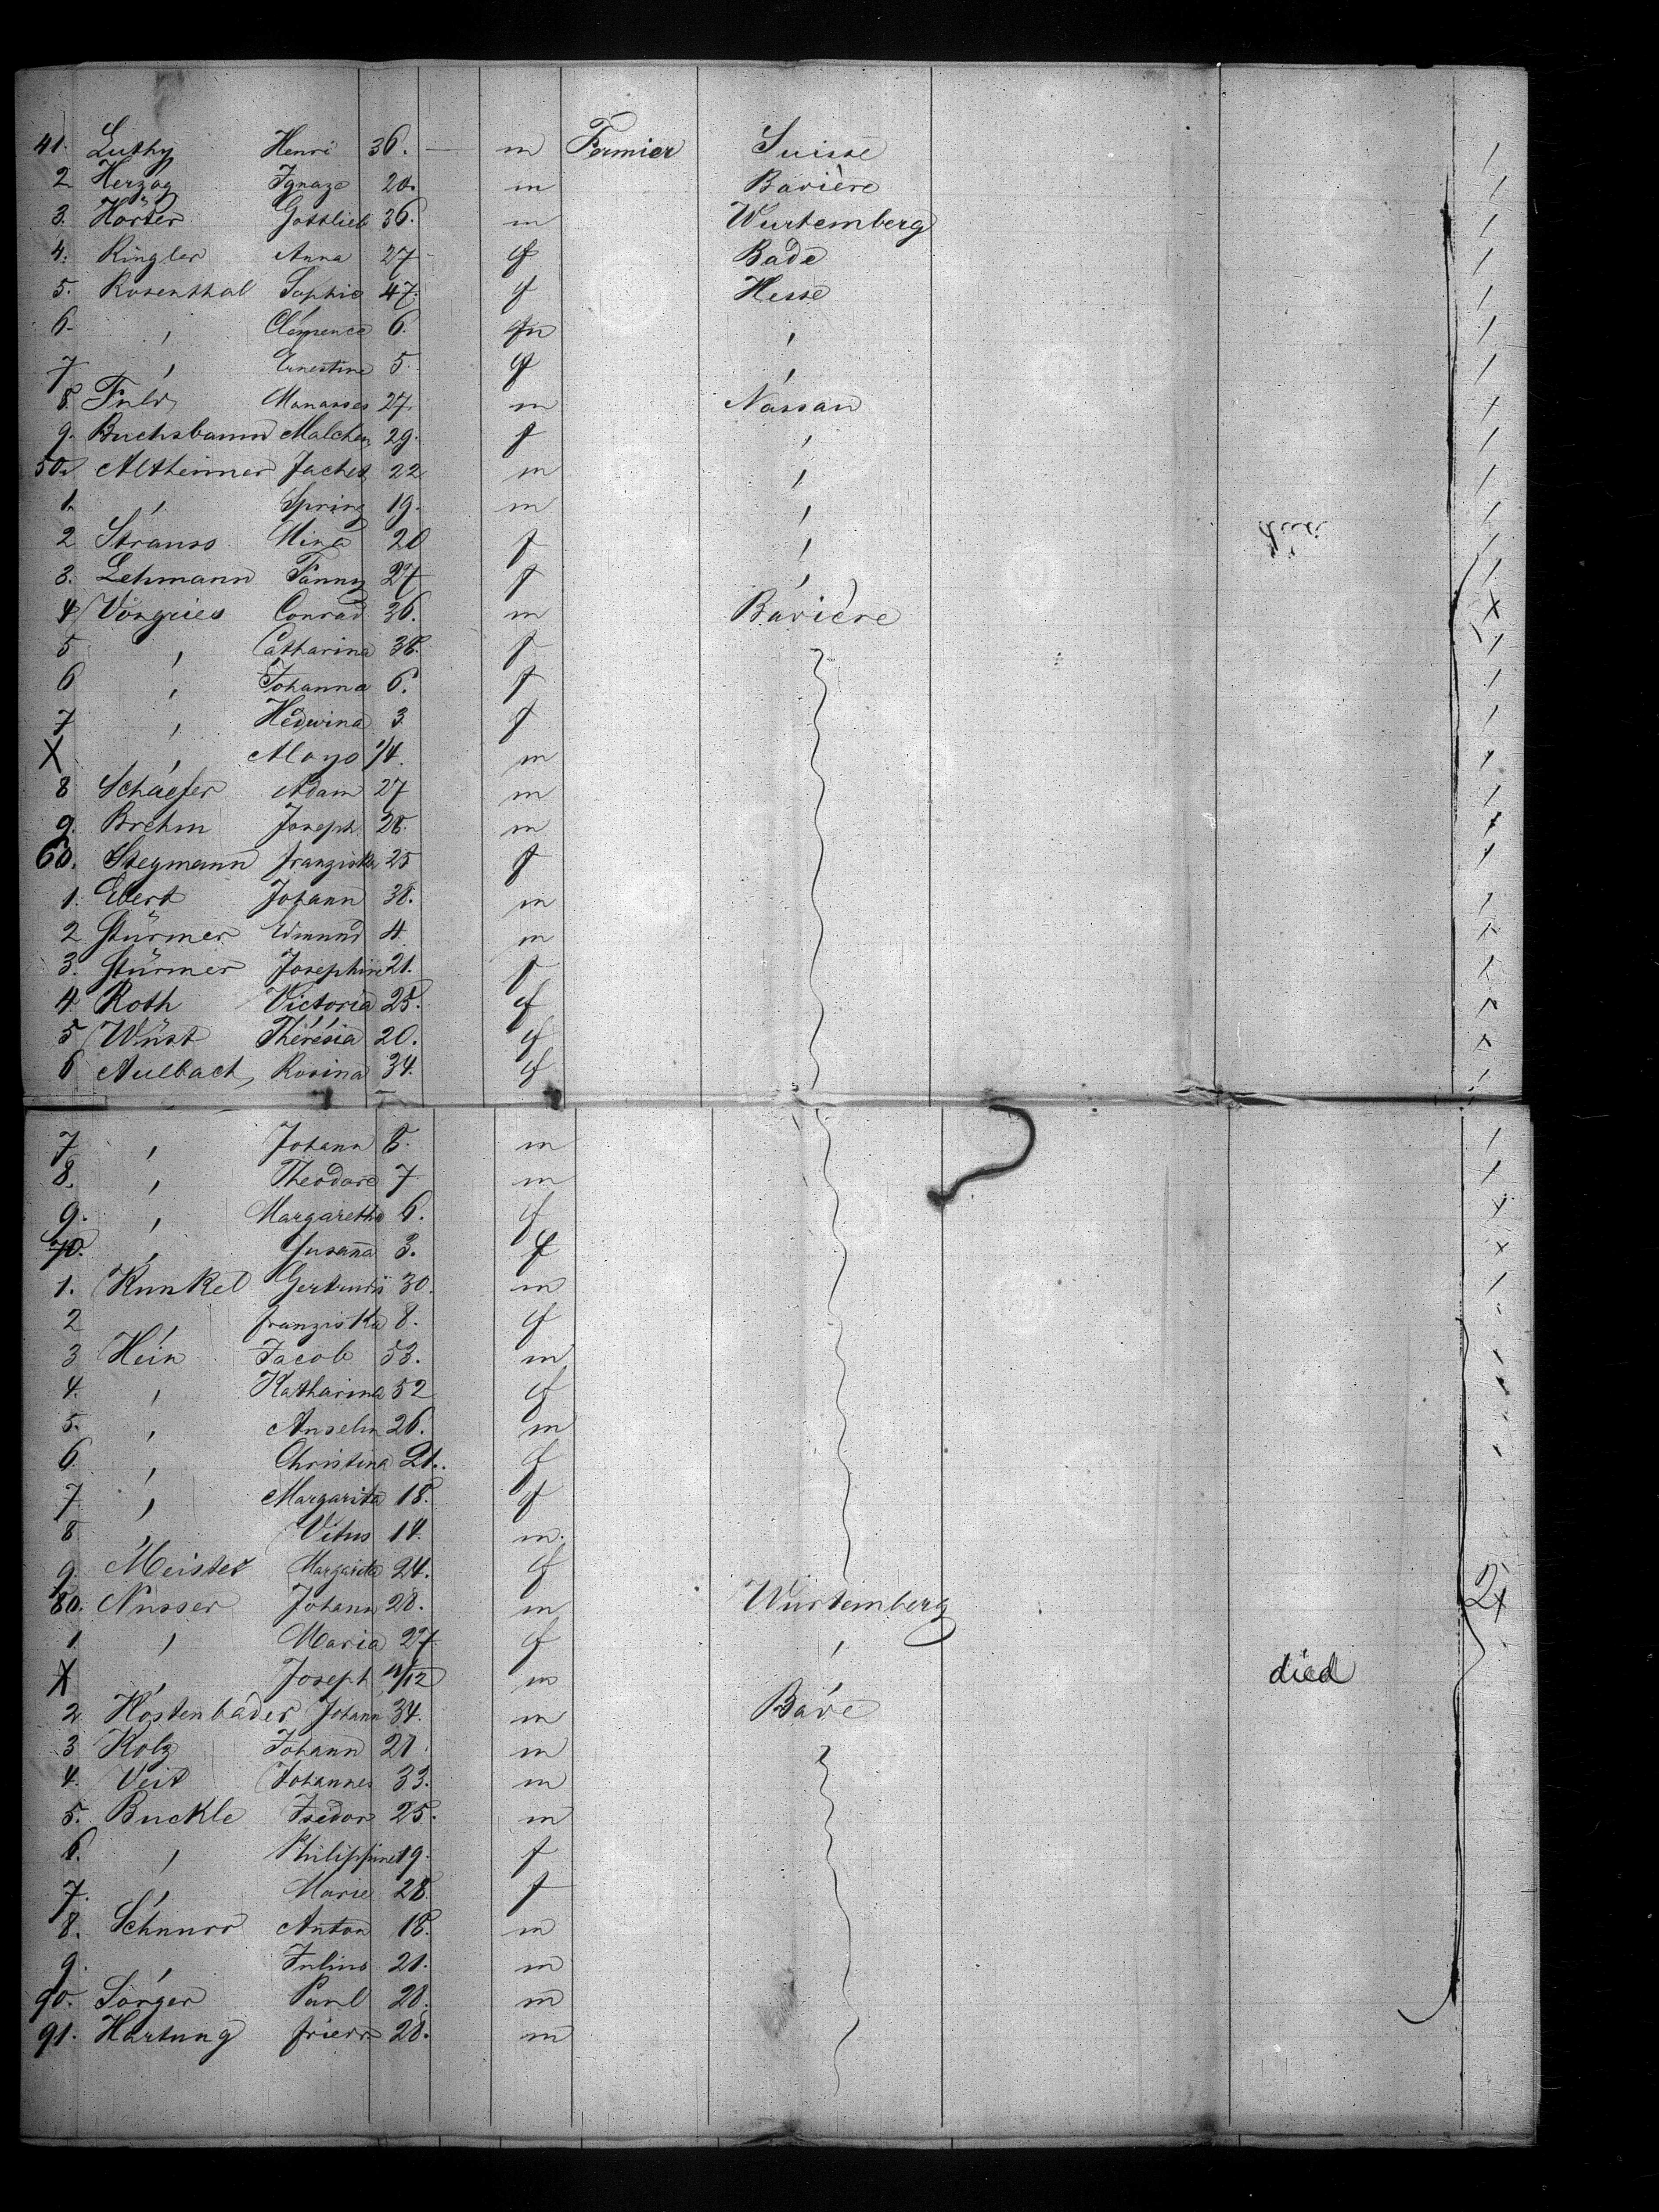 41. Luthy Henri 36. — m Fermier Suisse /
2 Herzog Ignaze 20. m Bavière /
3. Hörter Gottlieb 36. m Wurtemberg /
4. Ringler Anna 27 f Bade /
5. Rosenthal Sophie 47. f Hesse /
6. , Clémence 6. m , /
7 , Ernestine 5. f , /
8. Fuld Manasses 27. m Nassau /
9. Buchsbaum Malchen 29. f , /
50. Altheimer Jachet 22 m , /
1. , Spring 19. m , /
2 Strauss Mina 20 f , /
3. Lehmann Fanny 27 f , /
4 Vöngries Conrad 36. m Bavière X
5 , Catharina 38. f /
6 , Johanna 6. f /
7 , Hedwina 3 f /
X , Aloys 1/4. m /
8 Schaefer Adam 27 m /
9. Brehm Joseph 28. m /
60. Stegmann franziska 25 f /
1. Ebert Johann 38. m /
2 Stürmer Edmund 4. m
3. Stürmer Josephine 21. f
4 Roth Victoria 25. f
5 Wüst Thérésia 20. f
6 Aulbach Rosina 34. f
7 , Johann 8. m /
8. , Theodore 7 m /
9. , Margaretha 6. f
70. , Susanna 3. f x
1. Kunkel Gertrudis 30. m /
2 , franziska 8. f
3 Hein Jacob 53. m
4. , Katharina 52 f
5. , Anselm 26. m
6. , Christina 21. f
7 , Margarita 18. f
8 , Vitus 14. m.
9. Meister Margarita 24. f
80. Nusser Johann 28. m Wurtemberg 2x
1. , Maria 27 f ,
X , Joseph 11/12 m , died
2 Hostenbader Johann 34. m Bade
3 Kolz Johann 21. m
4. Veit Johannes 33. m
5. Buckle Isedor 25. m
6. , Philippine 19. f
7. , Marie 28. f
8. Schnurr Anton 18. m
9. , Julius 21. m
90. Sorger Paul 28. m
91. Hartung friedr. 28. m